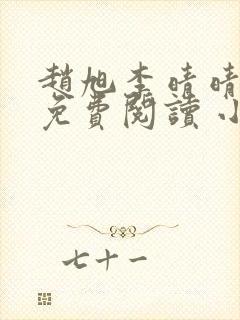 趙旭李晴晴
免費閱讀小
七十一